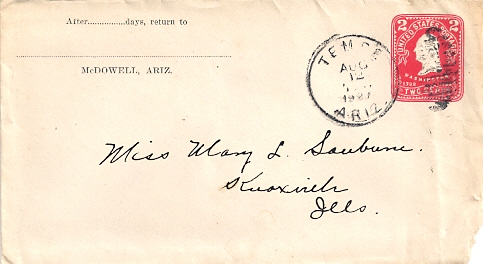 After...............days, return to
McDOWELL, ARIZ.
TEMPE
AUG
12
1907
ARIZ.
2 UNITED STATES POSTAGE 2
WASHINGTON
TWO
Miss Mary L.
Ills.